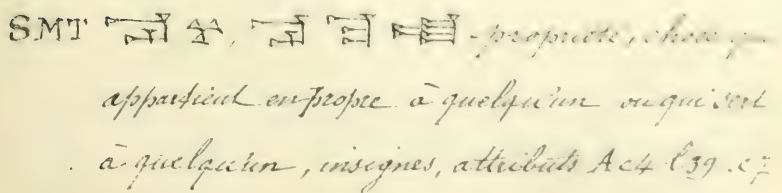 SMT 𒋛 𒆳, 𒋛 𒈠 propriété, chose q
appartient en propre à quelqu'un ou qui sert
à quelqu'un, insignes, attributs A c4 l39. c7